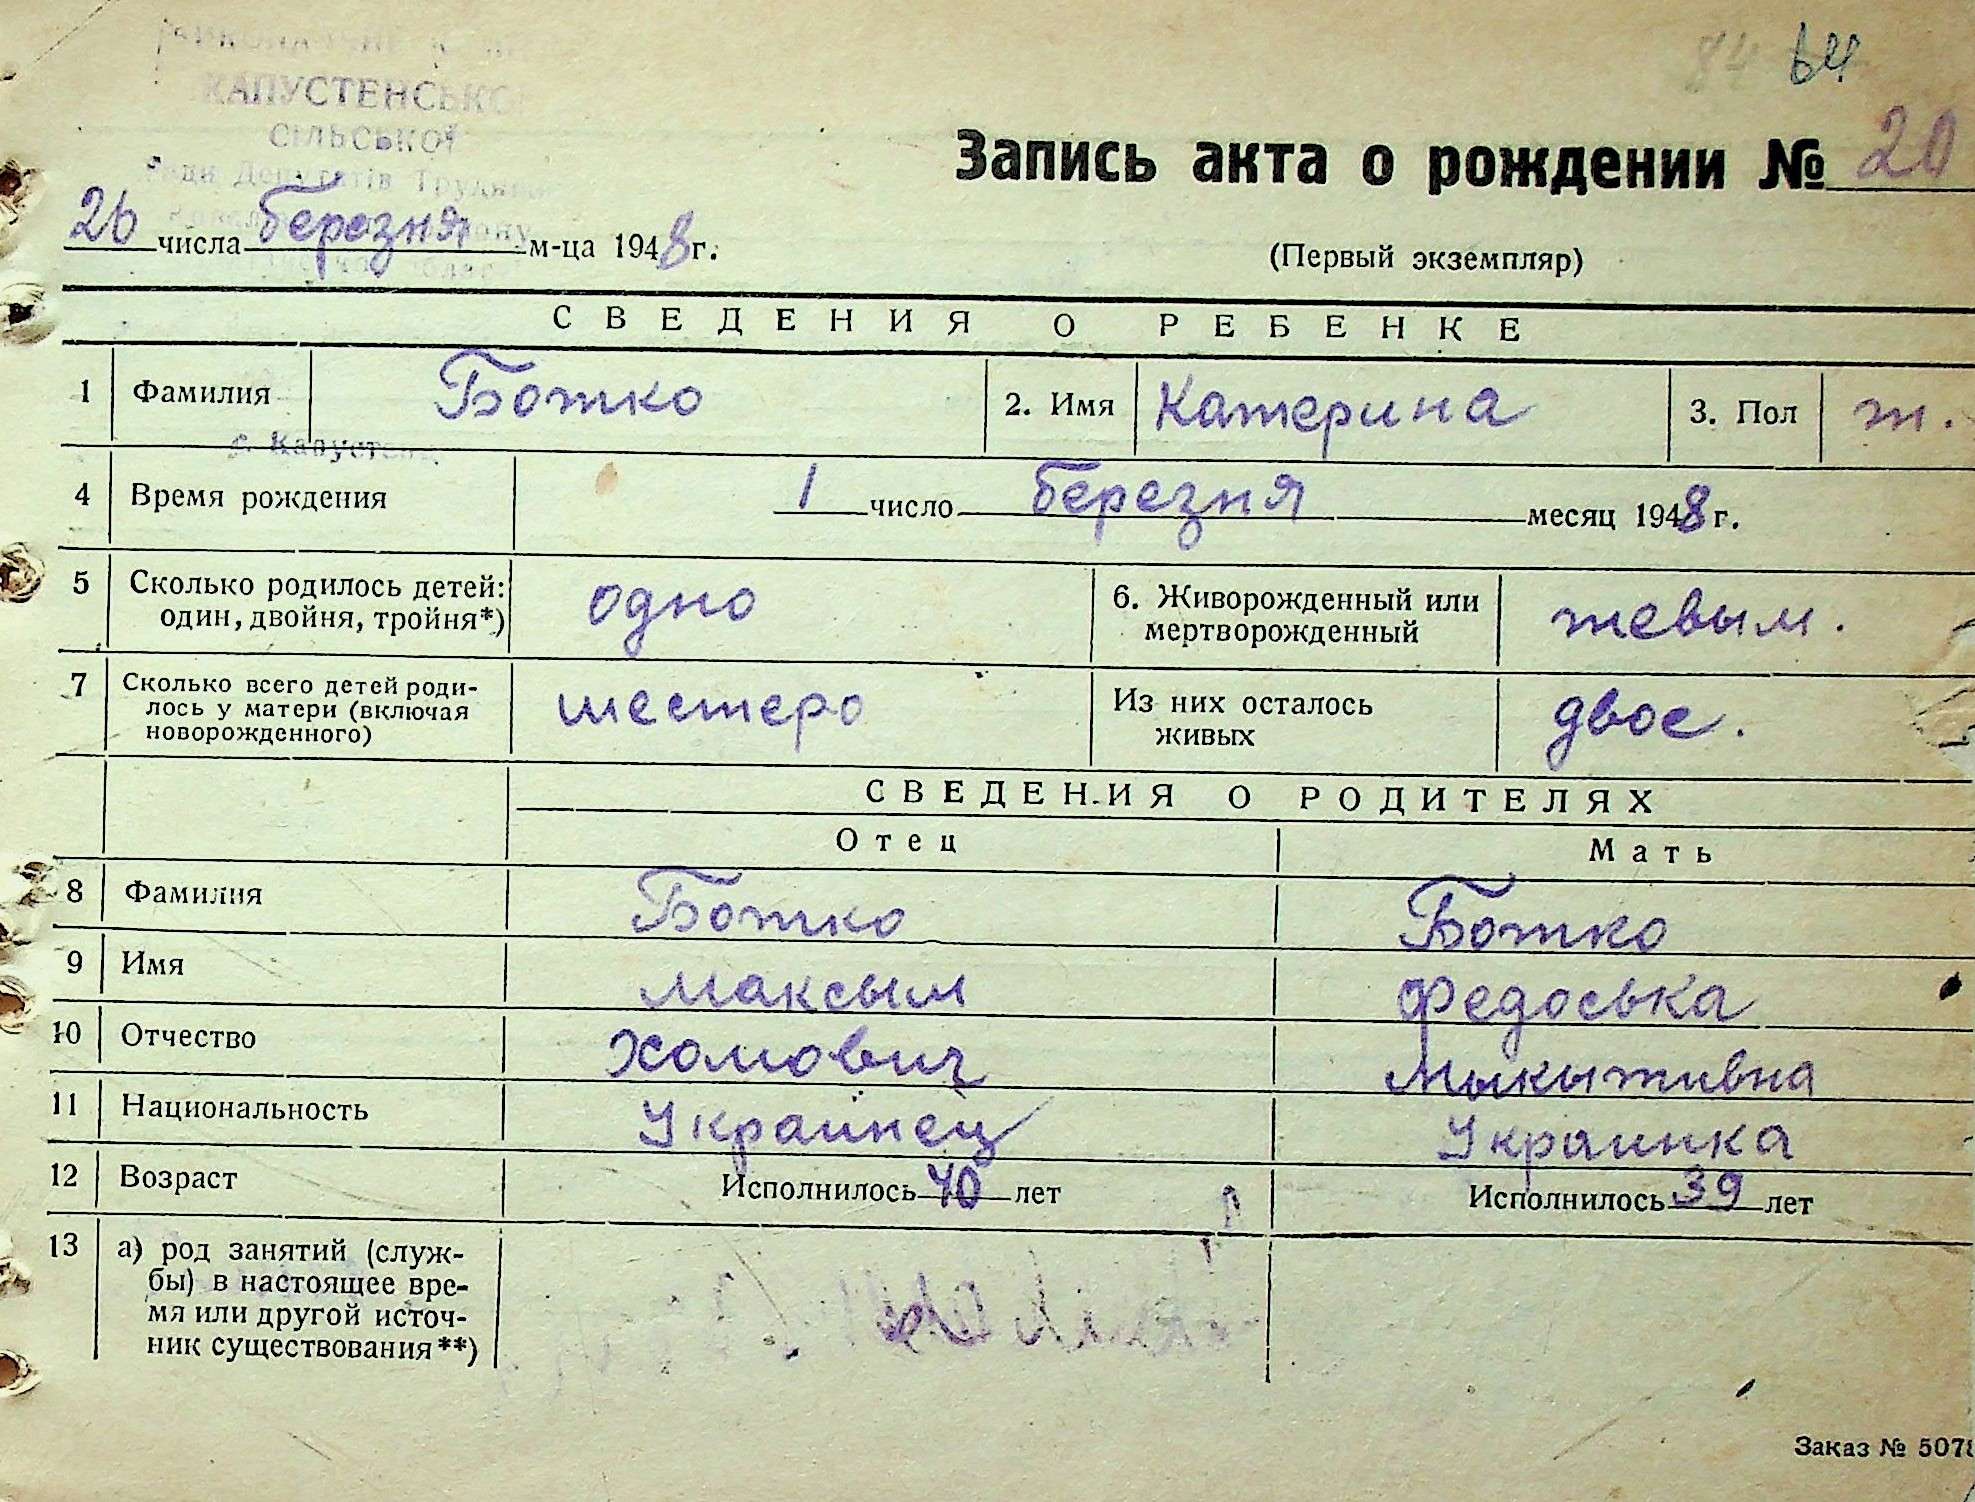 КАПУСТЕНСЬКО
СІЛЬСЬКОЇ
Ради Депутатів Трудящ
84 64
Запись акта о рождении № 20
26 числа березня м-ца 1948 г.
(Первый экземпляр)
СВЕДЕНИЯ О РЕБЕНКЕ
1 Фамилия Божко 2. Имя Катерина 3. Пол ж.
с. Капустен
4 Время рождения 1 число березня месяц 1948 г.
5 Сколько родилось детей: один, двойня, тройня*) одно 6. Живорожденный или мертворожденный жевым.
7 Сколько всего детей роди-
лось у матери (включая
новорожденного) шестеро Из них осталось живых двое.
СВЕДЕНИЯ О РОДИТЕЛЯХ
Отец Мать
8 Фамилия Божко Божко
9 Имя Максым Федоська
10 Отчество Хомович Мыкытивна
11 Национальность Украинец Украинка
12 Возраст Исполнилось 40 лет Исполнилось 39 лет
13 а) род занятий (служ-
бы) в настоящее вре-
мя или другой источ-
ник существования**)
Заказ № 5078